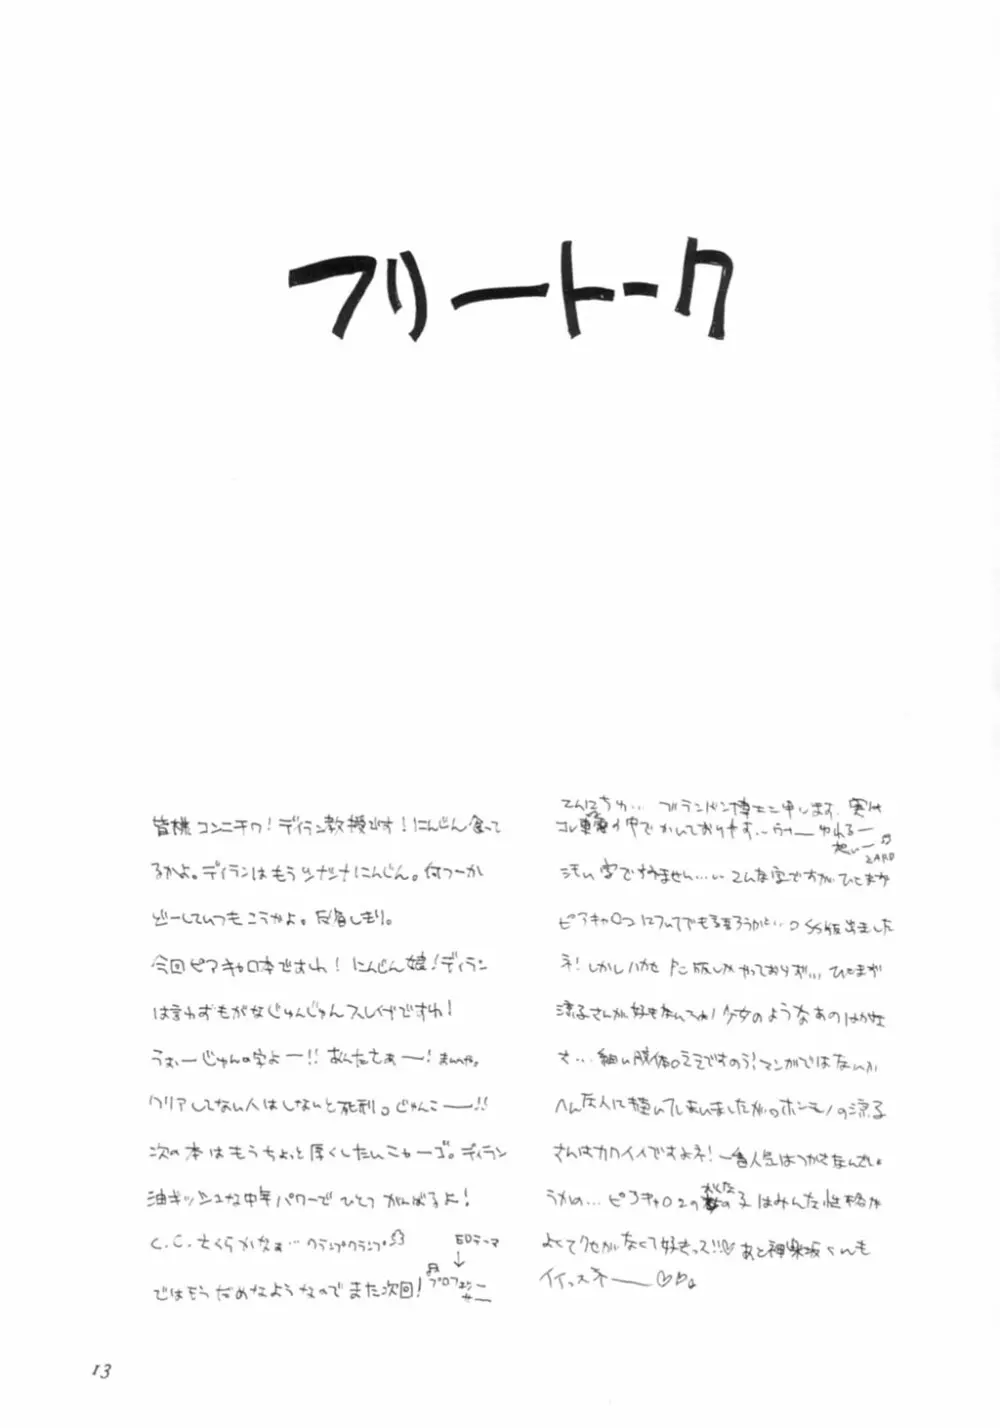 フリートーク
皆様コンニチワ！ディラン教授です！にんじん食って
るかよ。ディランはもうシナシナにんじん。何つーか
どーしていつもこうかよ。反省しきり。
今回ピアキャロ本ですわ！にんじん娘！ディラン
は言わずもがなじゅんじゅんスレイブですわ！
うおぉーじゅんの字よー!!あんたさぁー！まいいや。
クリアしてない人はしないと死刑。じゅんこーー!!
次の本はもうちょっと厚くしたいニャーゴ。ディラン
油ギッシュな中年パワーでひとつがんばるよ！
C.C.さくらかなぁ…クランプクランプ
EDテーマ
ではもうだめなようなのでまた次回！
プロフェッサー
こんにちわ… ブランドン博士と申します。実は
コレ車の中でかいております…ゆれるー
想いー♫
ZARD
汚い字ですみません…こんな字ですがひとまず
ピアキャロ2についてでも語ろうかと…SS版出ました
ネ！しかしハカセ 版しかやっておりず… ひとまず
涼子さんが好きなんです 少女のようなあのはかな
さ…細い肢体 ええですのう！マンガではないか
へんな人に描いてしまいましたが ホンモノの涼子
さんはカワイイですよネ！一番人気はつかさなんでしょ
うかの…ピアキャロ2の女の子はみんな性格が
よくてクセがなくて好きっス!!♡あと神楽坂くんも
イイっスネーー♡
13